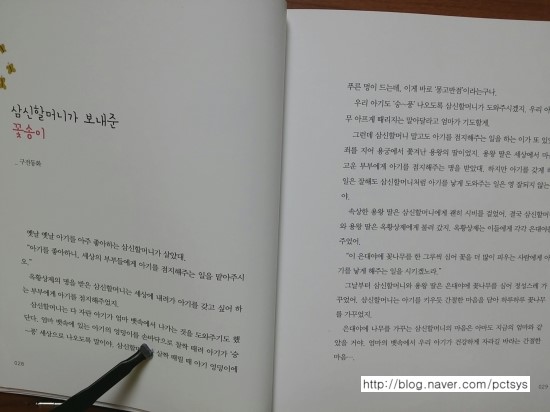 삼신할머니가 보내준
꽃송이
_ 구전동화
옛날 옛날 아기를 아주 좋아하는 삼신할머니가 살았대.
"아기를 좋아하니, 세상의 부부들에게 아기를 점지해주는 일을 맡아주시
오."
옥황상제의 명을 받은 삼신할머니는 세상에 내려가 아기를 갖고 싶어 하
는 부부에게 아기를 점지해주었지.
삼신할머니는 다 자란 아기가 엄마 뱃속에서 나가는 것을 도와주기도 했
단다. 엄마 뱃속에 있는 아기의 엉덩이를 손바닥으로 찰싹 때려 아기가 '슝
~퐁' 세상으로 나오도록 말이야. 삼신할머니 살짝 때릴 때 아기 엉덩이에
028
푸른 멍이 드는데, 이게 바로 '몽고반점'이라는구나.
우리 아기도 '슝~퐁' 나오도록 삼신할머니가 도와주시겠지. 우리 아
무 아프게 때리지는 말아달라고 엄마가 기도할게.
그런데 삼신할머니 말고도 아기를 점지해주는 일을 하는 이가 또 있
죄를 지어 용궁에서 쫓겨난 용왕의 딸이었지. 용왕 딸은 세상에서 마
고운 부부에게 아기를 점지해주는 명을 받았대. 하지만 아기를 갖게 하
일은 잘해도 삼신할머니처럼 아기를 낳게 도와주는 일은 영 잘되지 않는
야.
속상한 용왕 딸은 삼신할머니에게 괜히 시비를 걸었어. 결국 삼신할머
와 용왕 딸은 옥황상제에게 불려 갔지. 옥황상제는 이들에게 각각 은대야
주었어.
"이 은대야에 꽃나무를 한 그루씩 심어 꽃을 더 많이 피우는 사람에게 아
기를 낳게 해주는 일을 시키겠노라."
그날부터 삼신할머니와 용왕 딸은 은대야에 꽃나무를 심어 정성스레 가
꾸었어. 삼신할머니는 아기를 키우듯 간절한 마음을 담아 하루하루 꽃나무
를 가꾸었지.
은대야에 나무를 가꾸는 삼신할머니의 마음은 아마도 지금의 엄마와 같
았을 거야. 엄마의 뱃속에서 우리 아기가 건강하게 자라길 바라는 간절한
마음…….
029
http://blog.naver.com/pctsys